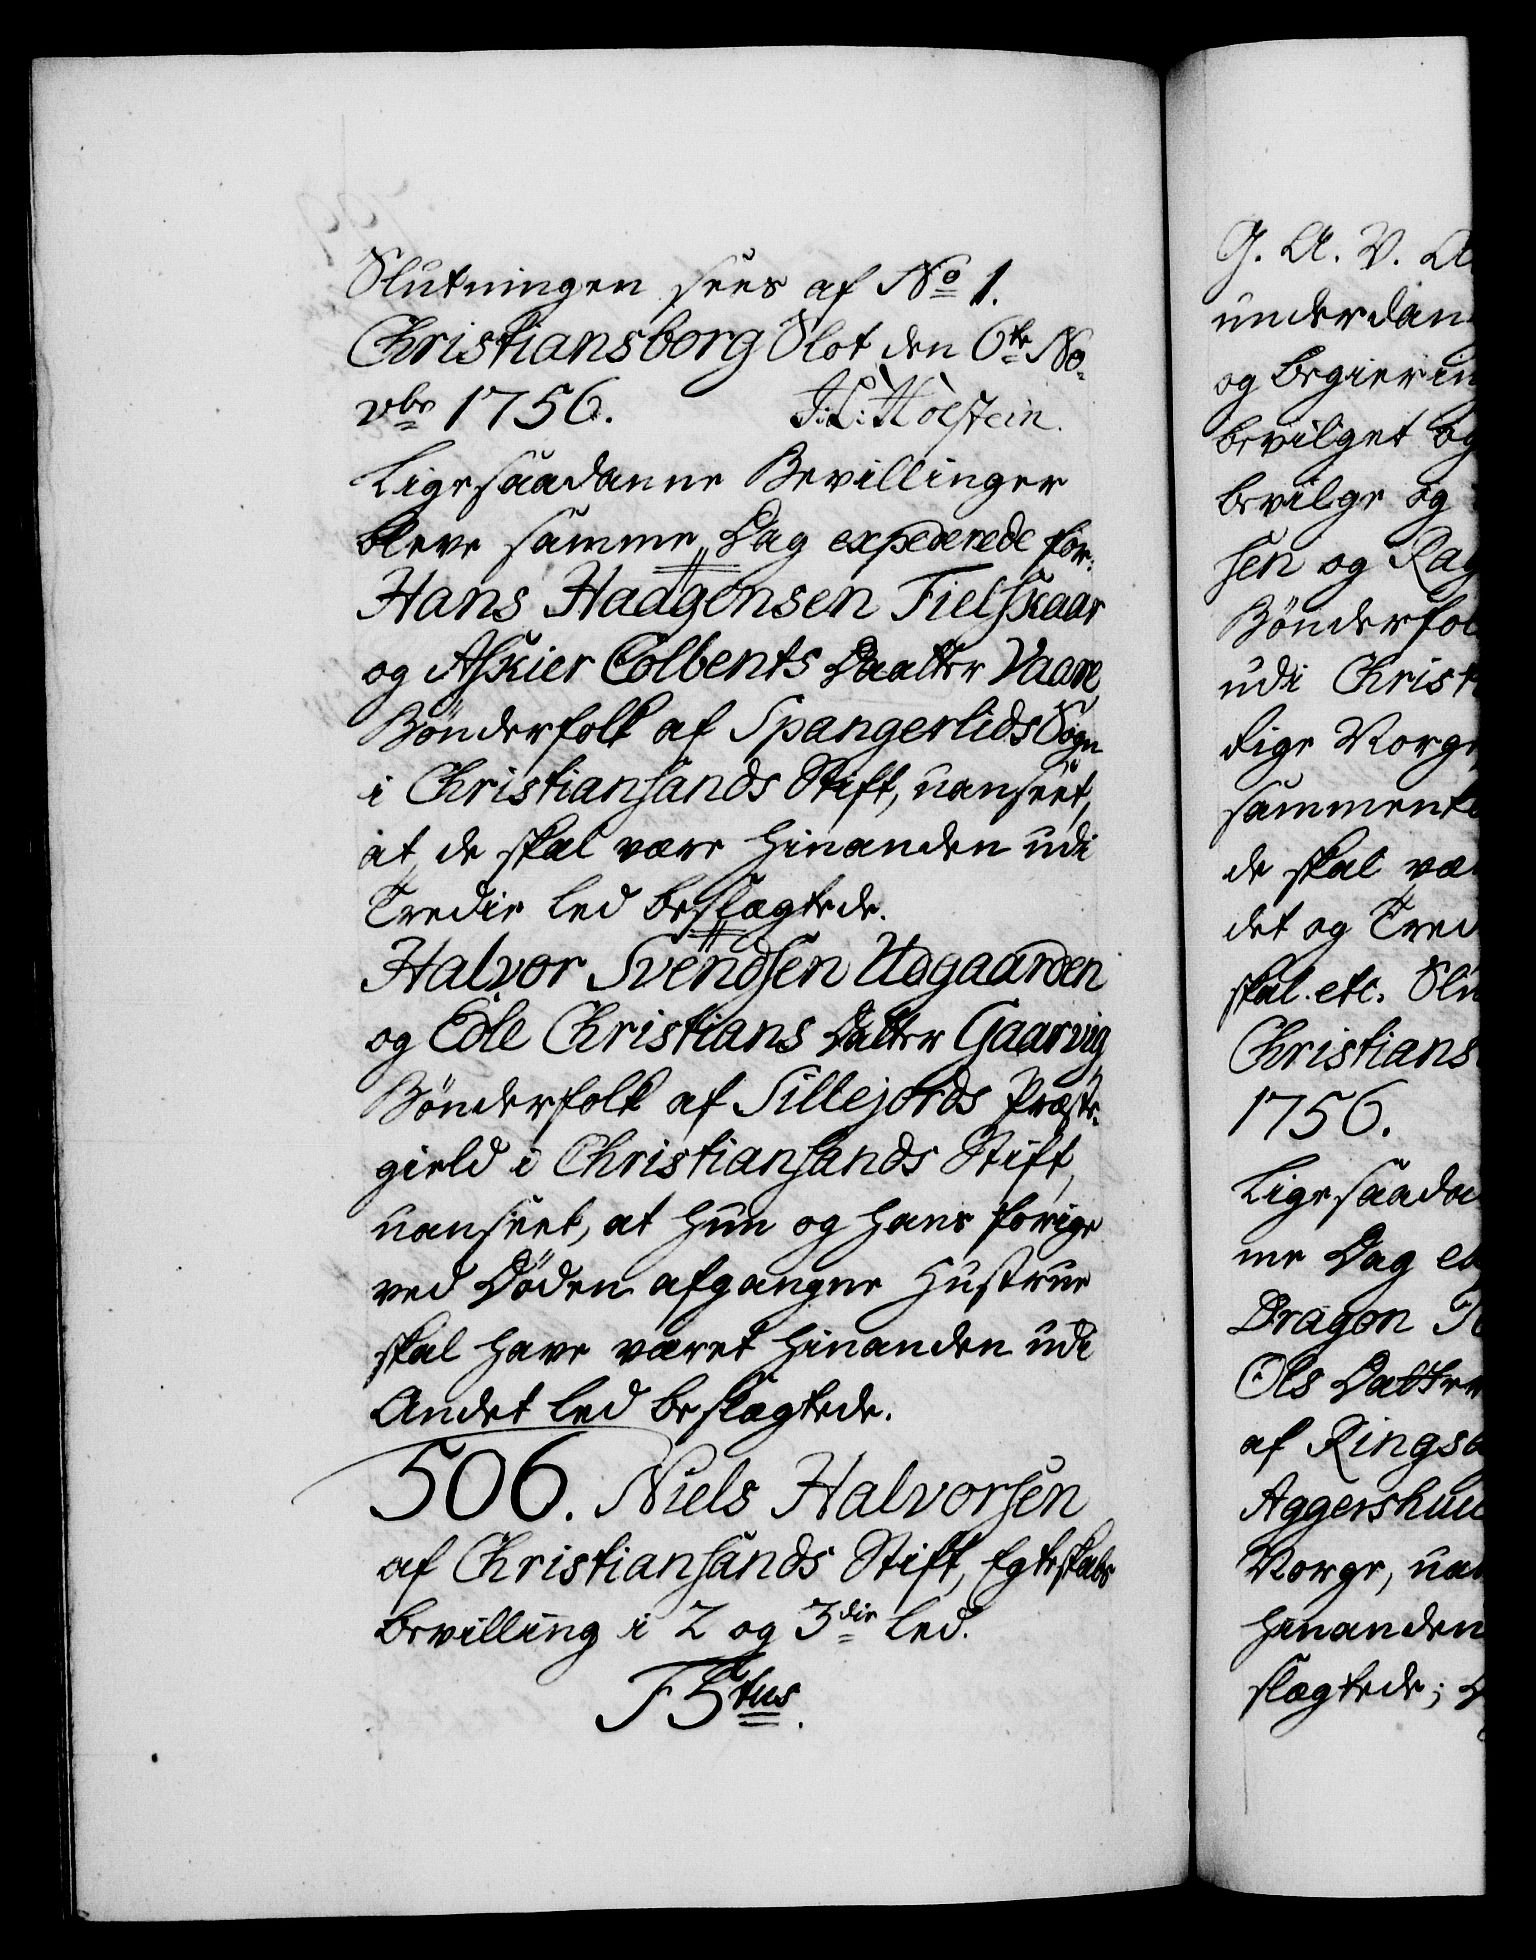 Slutningen sees af No 1.
Christiansborg Slot den 6te No-
vbr 1756. J: L: Holstein.
Ligesaadanne Bevillinger
bleve samme Dag expederede for:
Hans Haagensen Fielskaar
og Askier Colbents Daatter Vaare
Bønderfolk af Spangerlids Sogn
i Christiansands Stift, uanseet,
at de skal være hinanden udi
Tredie Led beslægtede.
Halvor Svendsen Udgaarden
og Edle Christians Datter Gaarvig
Bønderfolk af Sillejords Præste-
gield i Christiansands Stift,
uanseet, at hun og hans forige
ved Døden afgangne Hustrue
skal have været hinanden udi
Andet Led beslægtede.
506. Niels Halvorsen
af Christiansands Stift, Egteskabs
bevilling i 2 og 3die Led.
F5tus.
G. A. V. A
underdan
og begierin
bevilget og
bevilge og
sen og Rag
Bønderfol
udi Christ
dige Norge
sammen
de skal væ
det og Tred
skal. etc. Slu
Christians
1756.
Ligesaada
me Dag ex
Dragon
Ols Datter
af Ringsa
Aggershuu
Norge, uan
hinanden
slægtede;